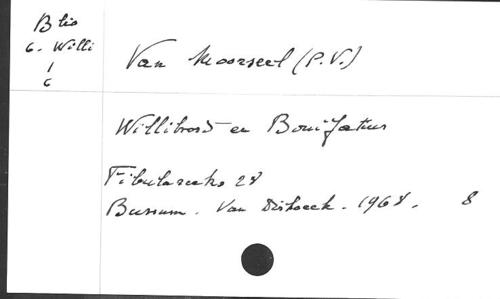 B lio
6. Willi
1
6
Van Moorsel (P.V.)
Willibrord en Bonifatius
Fibulareeks 28
Bussum. Van Dishoeck. 1968. 8